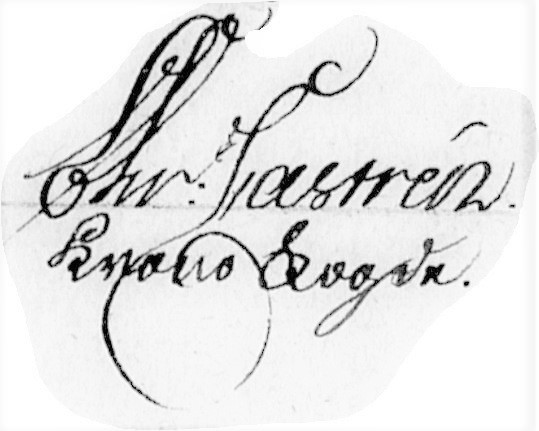 Chr: Castrén.
Krono Fogde.